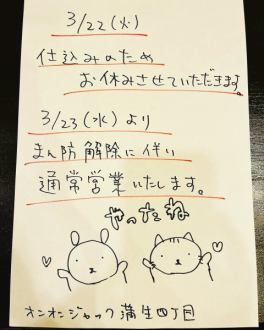 3/22(火)
仕込みのため
お休みさせていただきます。
3/23(水)より
まん防解除に伴い
通常営業いたします。
やったね
オンオンジャック蒲生四丁目